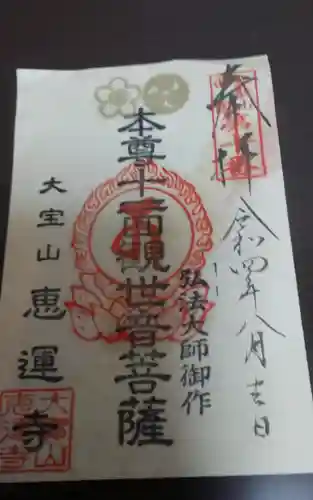 奉拝
令和四年八月吉日
弘法大師御作
本尊十一面観世音菩薩
大宝山 恵運寺